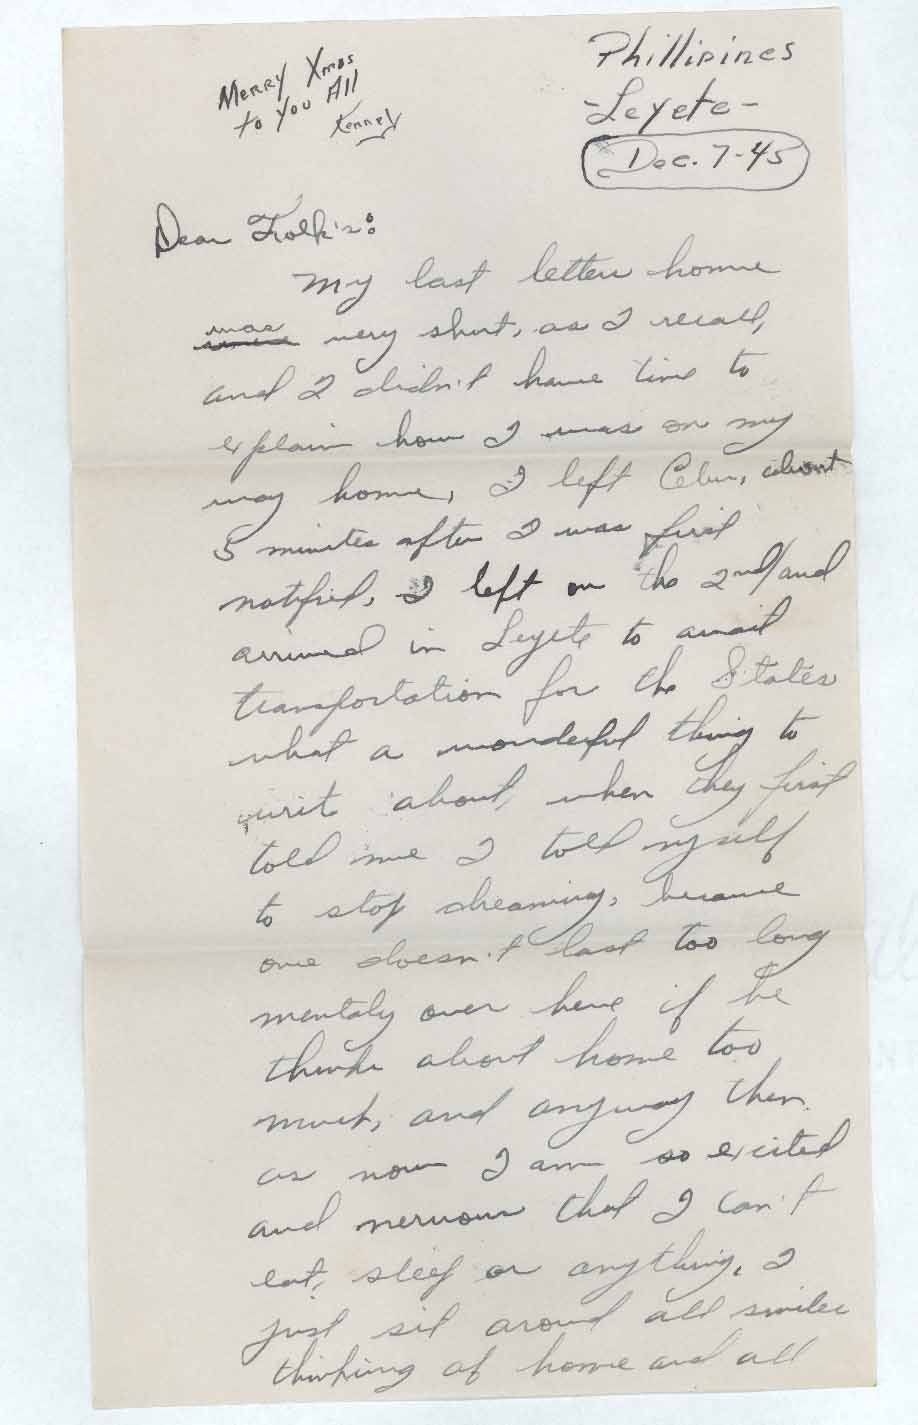 Merry Xmas
to You All
Kenney
Phillipines
-Leyete-
Dec. 7-45
Dear Folk's:
My last letter home
was very short, as I recall,
and I didn't have time to
explain how I was on my
way home, I left Cebu, about
5 minutes after I was first
notified, I left on the 2nd/and
arrived in Leyete to await
transportation for the States
what a wonderful thing to
writ about, when they first
told me I told myself
to stop dreaming, because
one doesn't last too long
mentaly over here if he
thinks about home too
much, and anyway then
as now I am so excited
and nervous that I can't
eat, sleep or anything, I
just sit around all smiles
thinking of home and all